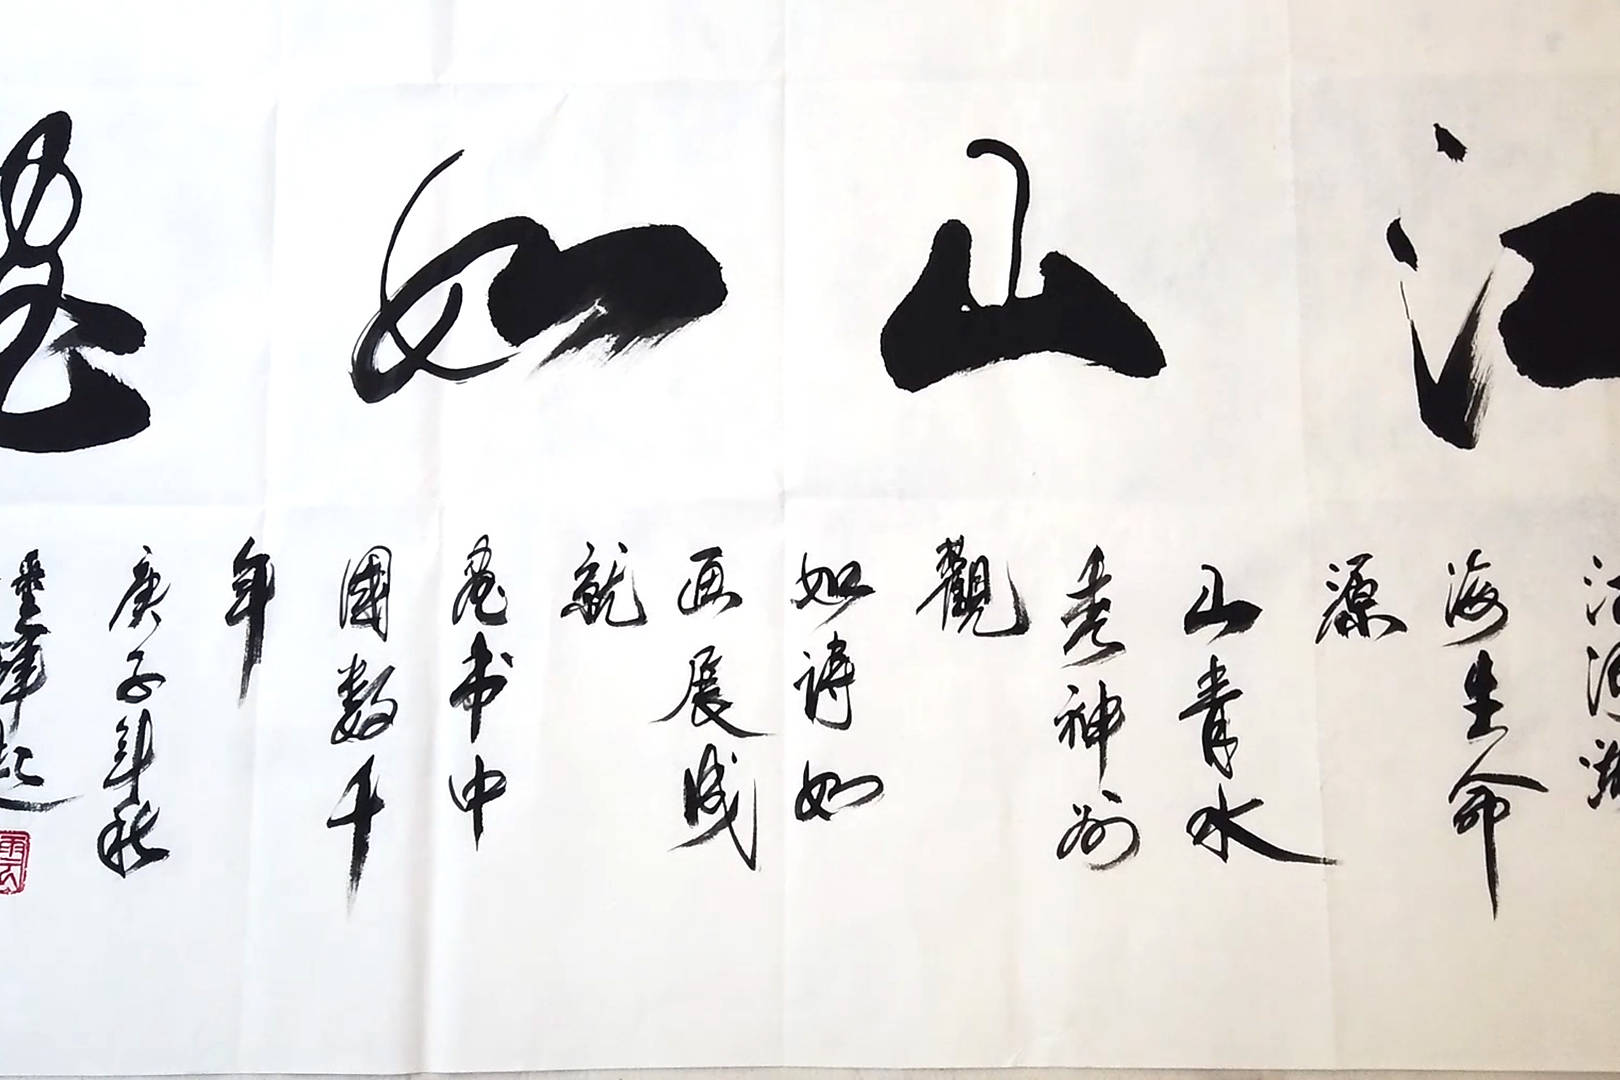 江山如畫
江河湖
海生命
源
山青水
秀神州
觀
如诗如
画展成
就
畫书中
國数千
年
庚子年秋